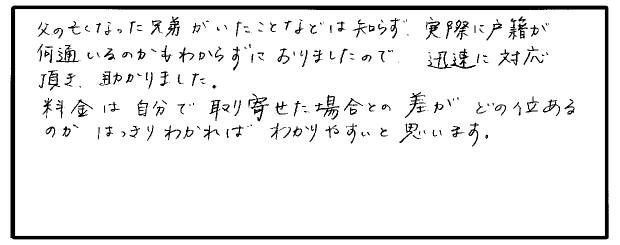 父の亡くなった兄弟がいたことなどは知らず、実際に戸籍が
何通いるのかもわからずにおりましたので、迅速に対応
頂き、助かりました。
料金は自分で取り寄せた場合との差がどの位ある
のかはっきりわかればわかりやすいと思います。